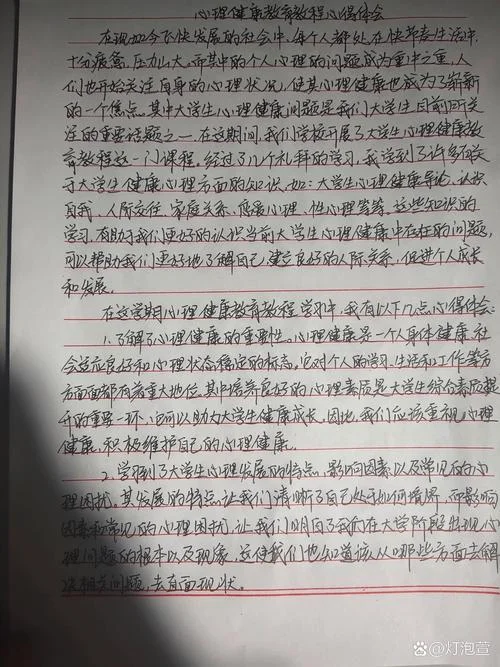 心理健康教育教程心得体会
在现如今飞快发展的社会中,每个人都处在快节奏生活中,
十分疲惫、压力山大,而其中的个人心理的问题成为重中之重,人
们也开始关注自身的心理状况,使其心理健康也成为了崭新
的一个焦点。其中大学生心理健康问题是我们大学生目前所关
注的重要话题之一,在这期间,我们学校开展了大学生心理健康教
育教程这一门课程,经过了几个礼拜的学习,我学到了许多有关
于大学生健康心理方面的知识,如:大学生心理健康导论、认识
自我、人际交往、家庭关系、恋爱心理、性心理等等。这些知识的
学习,有助于我们更好的认识当前大学生心理健康中存在的问题,
可以帮助我们更好地了解自己,建立良好的人际关系,促进个人成长
和发展。
在这学期心理健康教育教程学习中,我有以下几点心得体会:
1.了解了心理健康的重要性。心理健康是一个人身体健康、社
会适应良好和心理状态稳定的标志。它对个人的学习、生活和工作等方
方面面都有着重大地位,其中培养良好的心理素质是大学生综合素质提
升的重要一环,它可以助力大学生健康成长。因此,我们应该重视心理
健康,积极维护自己的心理健康。
2.学习到了大学生心理发展的特点、影响因素以及常见的心
理困扰。其发展的特点,让我们清晰了自己处于如何境界,而影响
因素和常见的心理困扰,让我们明白了我们在大学阶段出现心
理问题的根本以及现象,这使我们也知道该从哪些方面去解
决相关问题,去直面现状。
灯泡萱